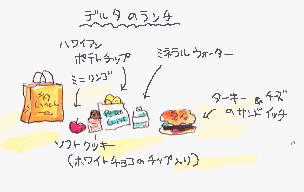 デルタのランチ
ハワイアン
ポテトチップ
ミネラルウォーター
ミニリンゴ
ターキー & チーズ
のサンドイッチ
ソフトクッキー
(ホワイトチョコのチップ入り)